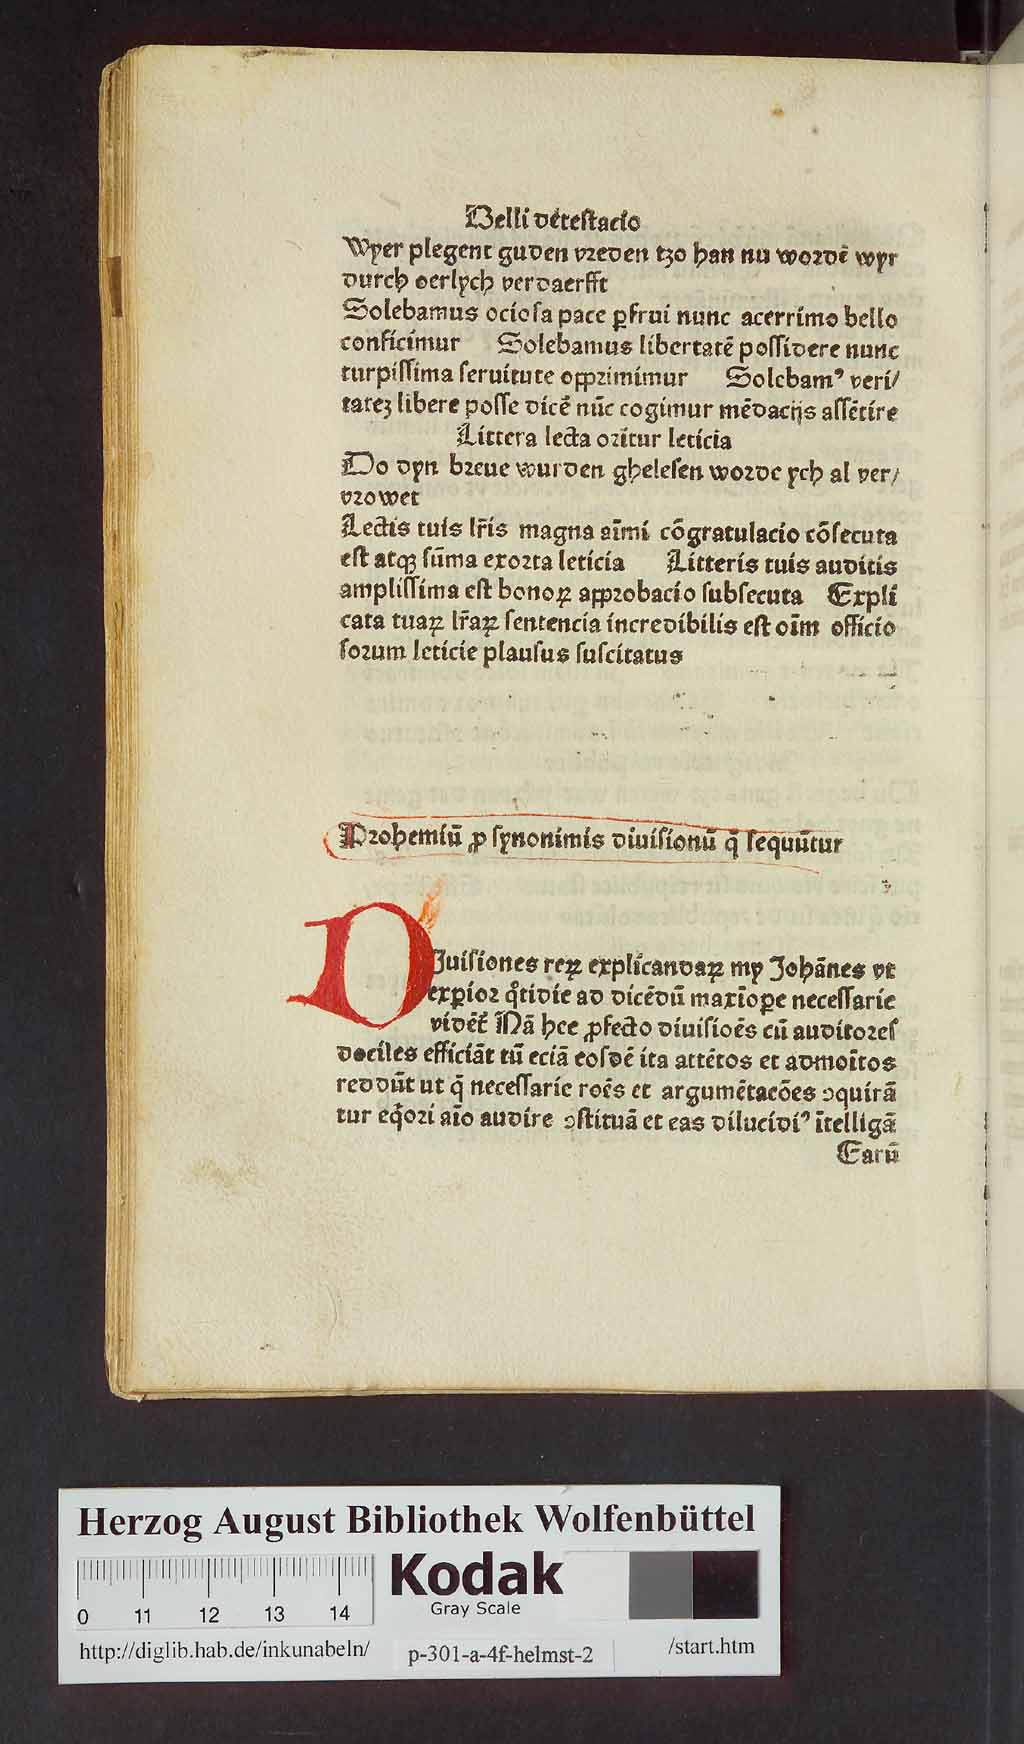 Belli detestacio
Wyer plegent guden vreden tzo han nu wordē wyr
durch oerlych verdaerfft
Solebamus ociosa pace ꝑfrui nunc acerrimo bello
conficimur Solebamus libertatē possidere nunc
turpissima seruitute opprimimur Solebamꝰ veri/
tateꝫ libere posse dicē nūc cogimur mēdacijs assētire
Littera lecta oritur leticia
Do dyn breue wurden ghelesen worde ych al ver/
vrowet
Lectis tuis lr̄is magna aīmi cōgratulacio cōsecuta
est atqꝫ sūma exorta leticia Litteris tuis auditis
amplissima est bonoꝝ approbacio subsecuta Expli
cata tuaꝝ lr̄aꝝ sentencia incredibilis est oīm officio
sorum leticie plausus suscitatus
Prohemiū ꝓ synonimis diuisionū q̄ sequūtur
DJuisiones reꝝ explicandaꝝ my Johānes vt
experior q̊tidie ad dicēdū maxīoꝑe necessarie
vidēt᷑ Nā hee ꝓfecto diuisioēs cū auditores
dociles efficiāt tū eciā eosdē ita attētos et admoītos
reddūt ut q̄ necessarie roēs et argumētacōes ꝯquirā
tur eq̊ori aīo audire ꝯstituā et eas dilucidiꝰ ītelligā
Earū
Herzog August Bibliothek Wolfenbüttel
Kodak
Gray Scale
0 11 12 13 14
http://diglib.hab.de/inkunabeln/ p-301-a-4f-helmst-2 /start.htm